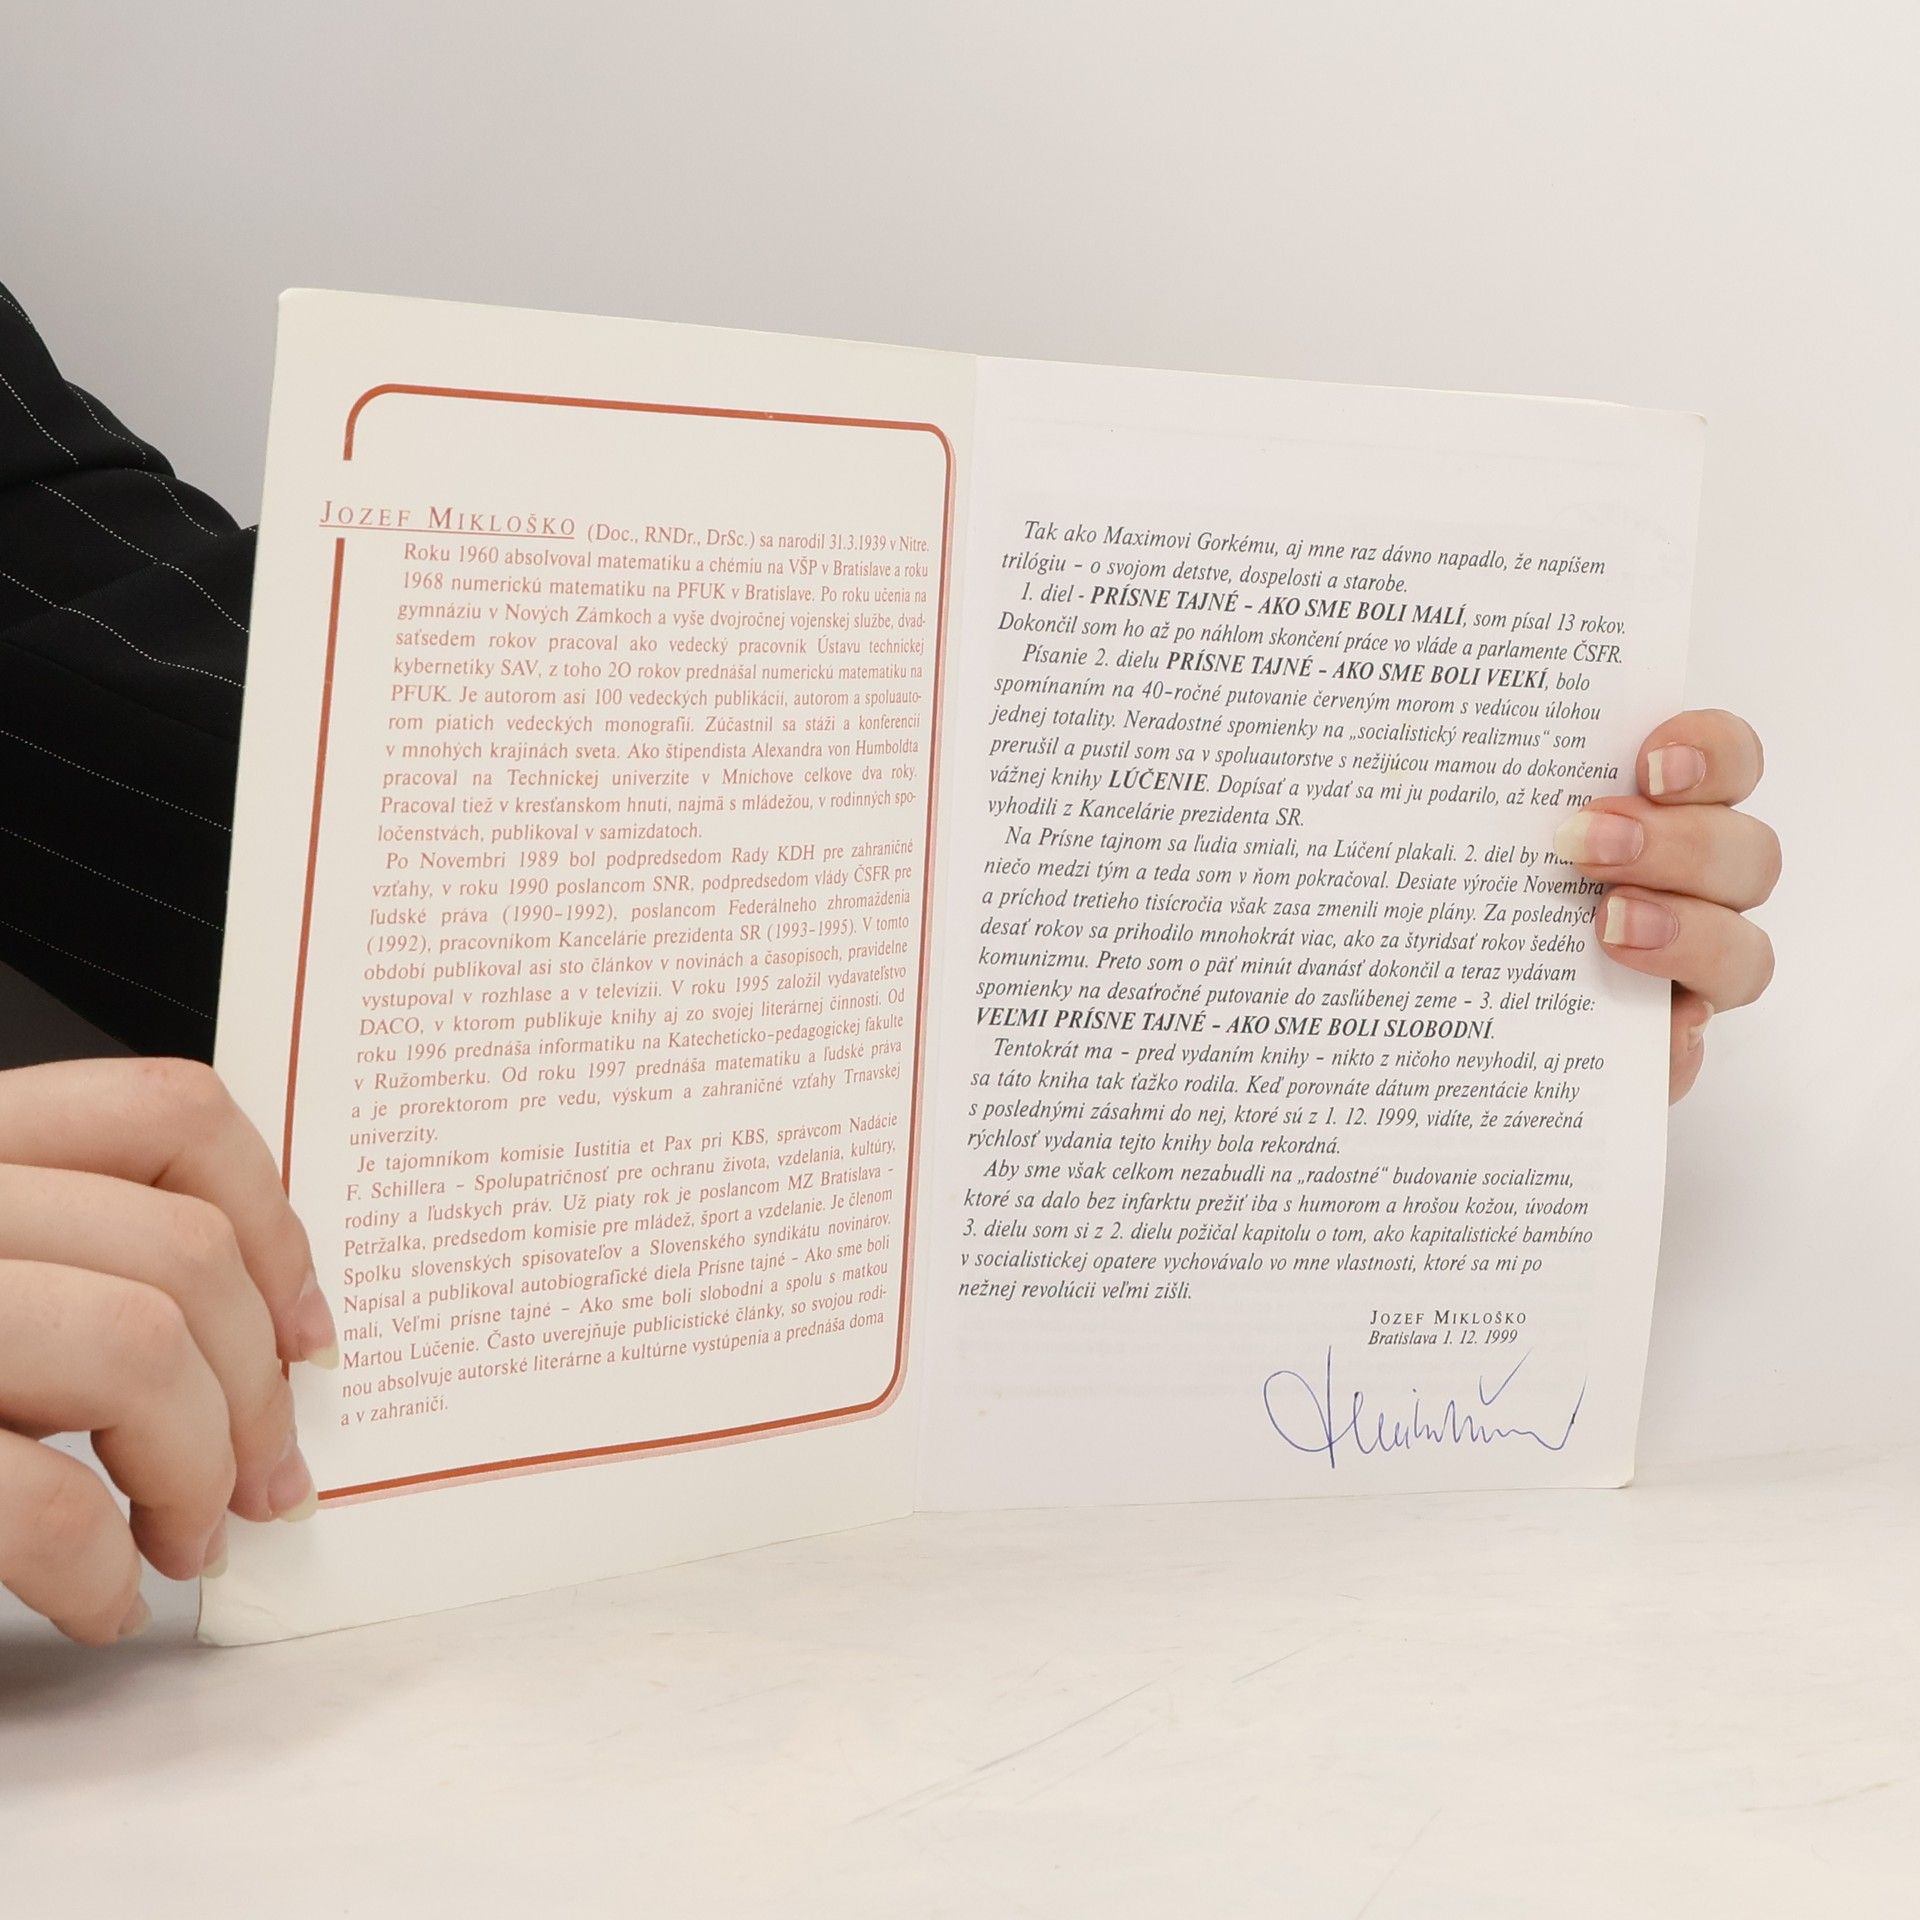 JOZEF MIKLOŠKO (Doc., RNDr., DrSc.) sa narodil 31.3.1939 v Nitre.
Roku 1960 absolvoval matematiku a chémiu na VŠP v Bratislave a roku
1968 numerickú matematiku na PFUK v Bratislave. Po roku učenia na
gymnáziu v Nových Zámkoch a vyše dvojročnej vojenskej službe, dvad-
saťsedem rokov pracoval ako vedecký pracovník Ústavu technickej
kybernetiky SAV, z toho 20 rokov prednášal numerickú matematiku na
PFUK. Je autorom asi 100 vedeckých publikácií, autorom a spoluauto-
rom piatich vedeckých monografií. Zúčastnil sa stáží a konferencií
v mnohých krajinách sveta. Ako štipendista Alexandra von Humboldta
pracoval na Technickej univerzite v Mníchove celkove dva roky.
Pracoval tiež v kresťanskom hnutí, najmä s mládežou, v rodinných spo-
ločenstvách, publikoval v samizdatoch.
Po Novembri 1989 bol podpredsedom Rady KDH pre zahraničné
vzťahy, v roku 1990 poslancom SNR, podpredsedom vlády ČSFR pre
ľudské práva (1990-1992), poslancom Federálneho zhromaždenia
(1992), pracovníkom Kancelárie prezidenta SR (1993-1995). V tomto
období publikoval asi sto článkov v novinách a časopisoch, pravidelne
vystupoval v rozhlase a v televízii. V roku 1995 založil vydavateľstvo
DACO, v ktorom publikuje knihy aj zo svojej literárnej činnosti. Od
roku 1996 prednáša informatiku na Katecheticko-pedagogickej fakulte
v Ružomberku. Od roku 1997 prednáša matematiku a ľudské práva
a je prorektorom pre vedu, výskum a zahraničné vzťahy Trnavskej
univerzity.
Je tajomníkom komisie Iustitia et Pax pri KBS, správcom Nadácie
F. Schillera – Spolupatričnosť pre ochranu života, vzdelania, kultúry,
rodiny a ľudských práv. Už piaty rok je poslancom MZ Bratislava -
Petržalka, predsedom komisie pre mládež, šport a vzdelanie. Je členom
Spolku slovenských spisovateľov a Slovenského syndikátu novinárov.
Napísal a publikoval autobiografické diela Prísne tajné – Ako sme boli
malí, Veľmi prísne tajné – Ako sme boli slobodní a spolu s matkou
Martou Lúčenie. Často uverejňuje publicistické články, so svojou rodi-
nou absolvuje autorské literárne a kultúrne vystúpenia a prednáša doma
a v zahraničí.
Tak ako Maximovi Gorkému, aj mne raz dávno napadlo, že napíšem
trilógiu – o svojom detstve, dospelosti a starobe.
1. diel - PRÍSNE TAJNÉ – AKO SME BOLI MALÍ, som písal 13 rokov.
Dokončil som ho až po náhlom skončení práce vo vláde a parlamente ČSFR.
Písanie 2. dielu PRÍSNE TAJNÉ – AKO SME BOLI VEĽKÍ, bolo
spomínaním na 40-ročné putovanie červeným morom s vedúcou úlohou
jednej totality. Neradostné spomienky na „socialistický realizmus“ som
prerušil a pustil som sa v spoluautorstve s nežijúcou mamou do dokončenia
vážnej knihy LÚČENIE. Dopísať a vydať sa mi ju podarilo, až keď ma
vyhodili z Kancelárie prezidenta SR.
Na Prísne tajnom sa ľudia smiali, na Lúčení plakali. 2. diel by
niečo medzi tým a teda som v ňom pokračoval. Desiate výročie Novembra
a príchod tretieho tisícročia však zasa zmenili moje plány. Za posledných
desať rokov sa prihodilo mnohokrát viac, ako za štyridsať rokov šedého
komunizmu. Preto som o päť minút dvanásť dokončil a teraz vydávam
spomienky na desaťročné putovanie do zasľúbenej zeme – 3. diel trilógie:
VEĽMI PRÍSNE TAJNÉ – AKO SME BOLI SLOBODNÍ.
Tentokrát ma – pred vydaním knihy – nikto z ničoho nevyhodil, aj preto
sa táto kniha tak ťažko rodila. Keď porovnáte dátum prezentácie knihy
s poslednými zásahmi do nej, ktoré sú z 1. 12. 1999, vidíte, že záverečná
rýchlosť vydania tejto knihy bola rekordná.
Aby sme však celkom nezabudli na „radostné“ budovanie socializmu,
ktoré sa dalo bez infarktu prežiť iba s humorom a hrošou kožou, úvodom
3. dielu som si z 2. dielu požičal kapitolu o tom, ako kapitalistické bambíno
v socialistickej opatere vychovávalo vo mne vlastnosti, ktoré sa mi po
nežnej revolúcii veľmi zišli.
JOZEF MIKLOŠKO
Bratislava 1. 12. 1999